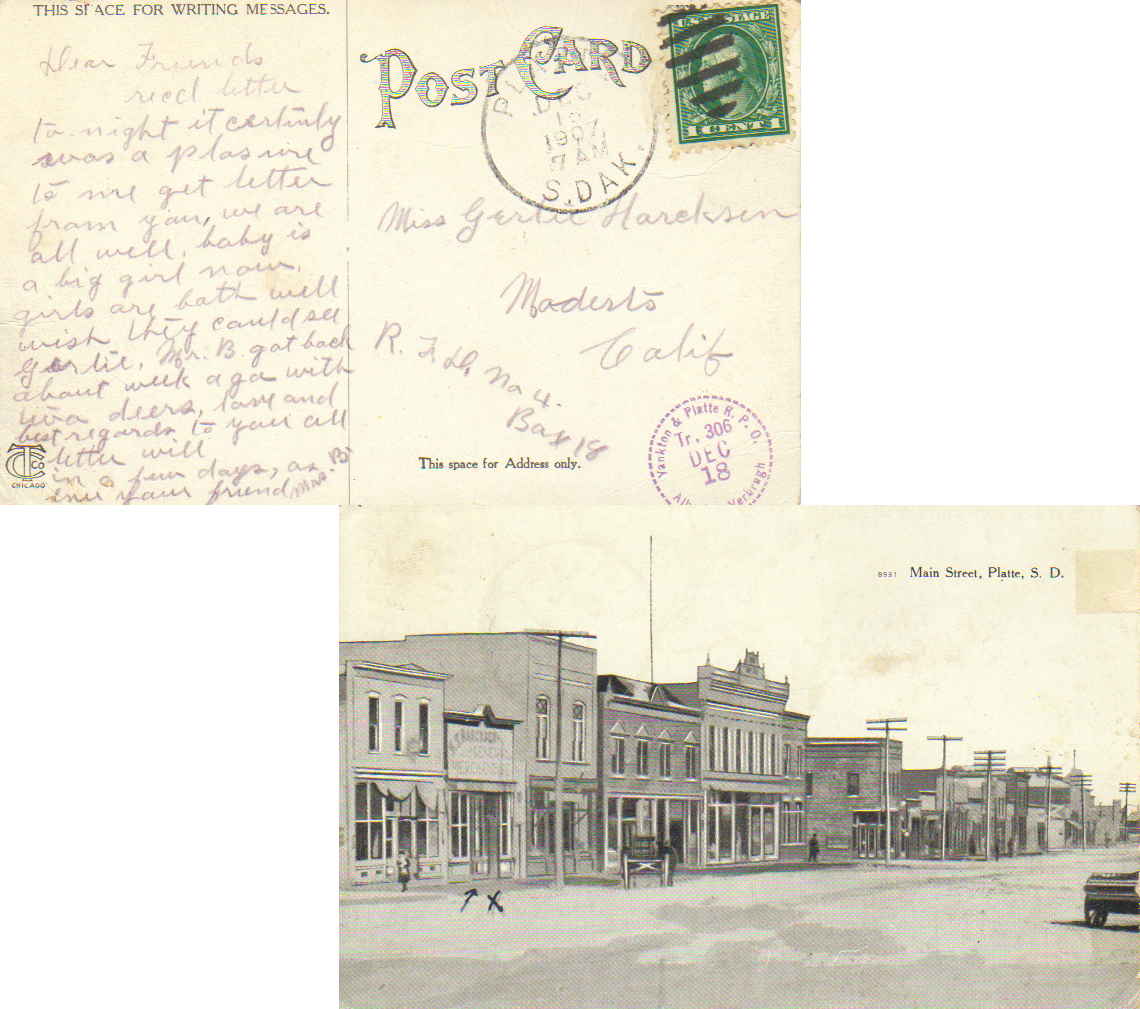 THIS SPACE FOR WRITING MESSAGES.
Dear Friends
recd letter
to-night it certinly
was a plasure
to me get letter
from you, we are
all well, baby is
a big girl now,
girls are both well
wish they could see
Gertie, Mr. B. got back
about week ago with
two deers, love and
best regards to you all
letter will
in a few days, as
your friend Mrs. B.
TC CO
CHICAGO
POST CARD
U.S. POSTAGE
1 CENT 1
DEC
7 AM
S.DAK.
Miss Gertie Harcksen
Modesto
Calif
R. F. D. No 4.
Box 18
This space for Address only.
Yankton & Platte R.P.O.
Tr. 306
DEC
18
8991 Main Street, Platte, S. D.
X